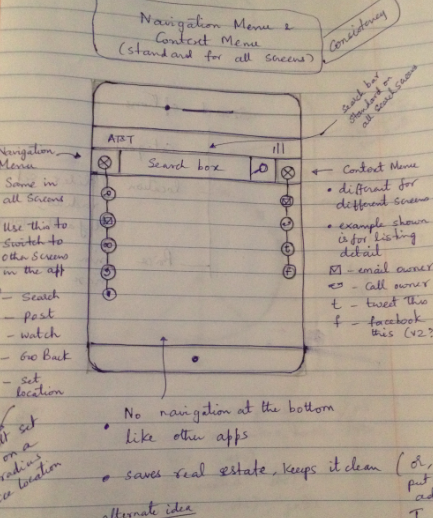 Navigation Menu &
Context Menu
(standard for all screens)
Consistency
search box
standard on
all search screens
AT&T
Search box
Navigation
Menu
Same in
all screens
Use this to
switch to
other screens
in the app
- Search
- Post
- Watch
- Go Back
- Set
location
set
on a
radius
location
Context Menu
• different for
different screens
• example shown
is for listing
detail
- email owner
- call owner
t - tweet this
f - facebook
this (v2)
• No navigation at the bottom
like other apps
• saves real estate, keeps it clean (or,
put
ad
alternate idea